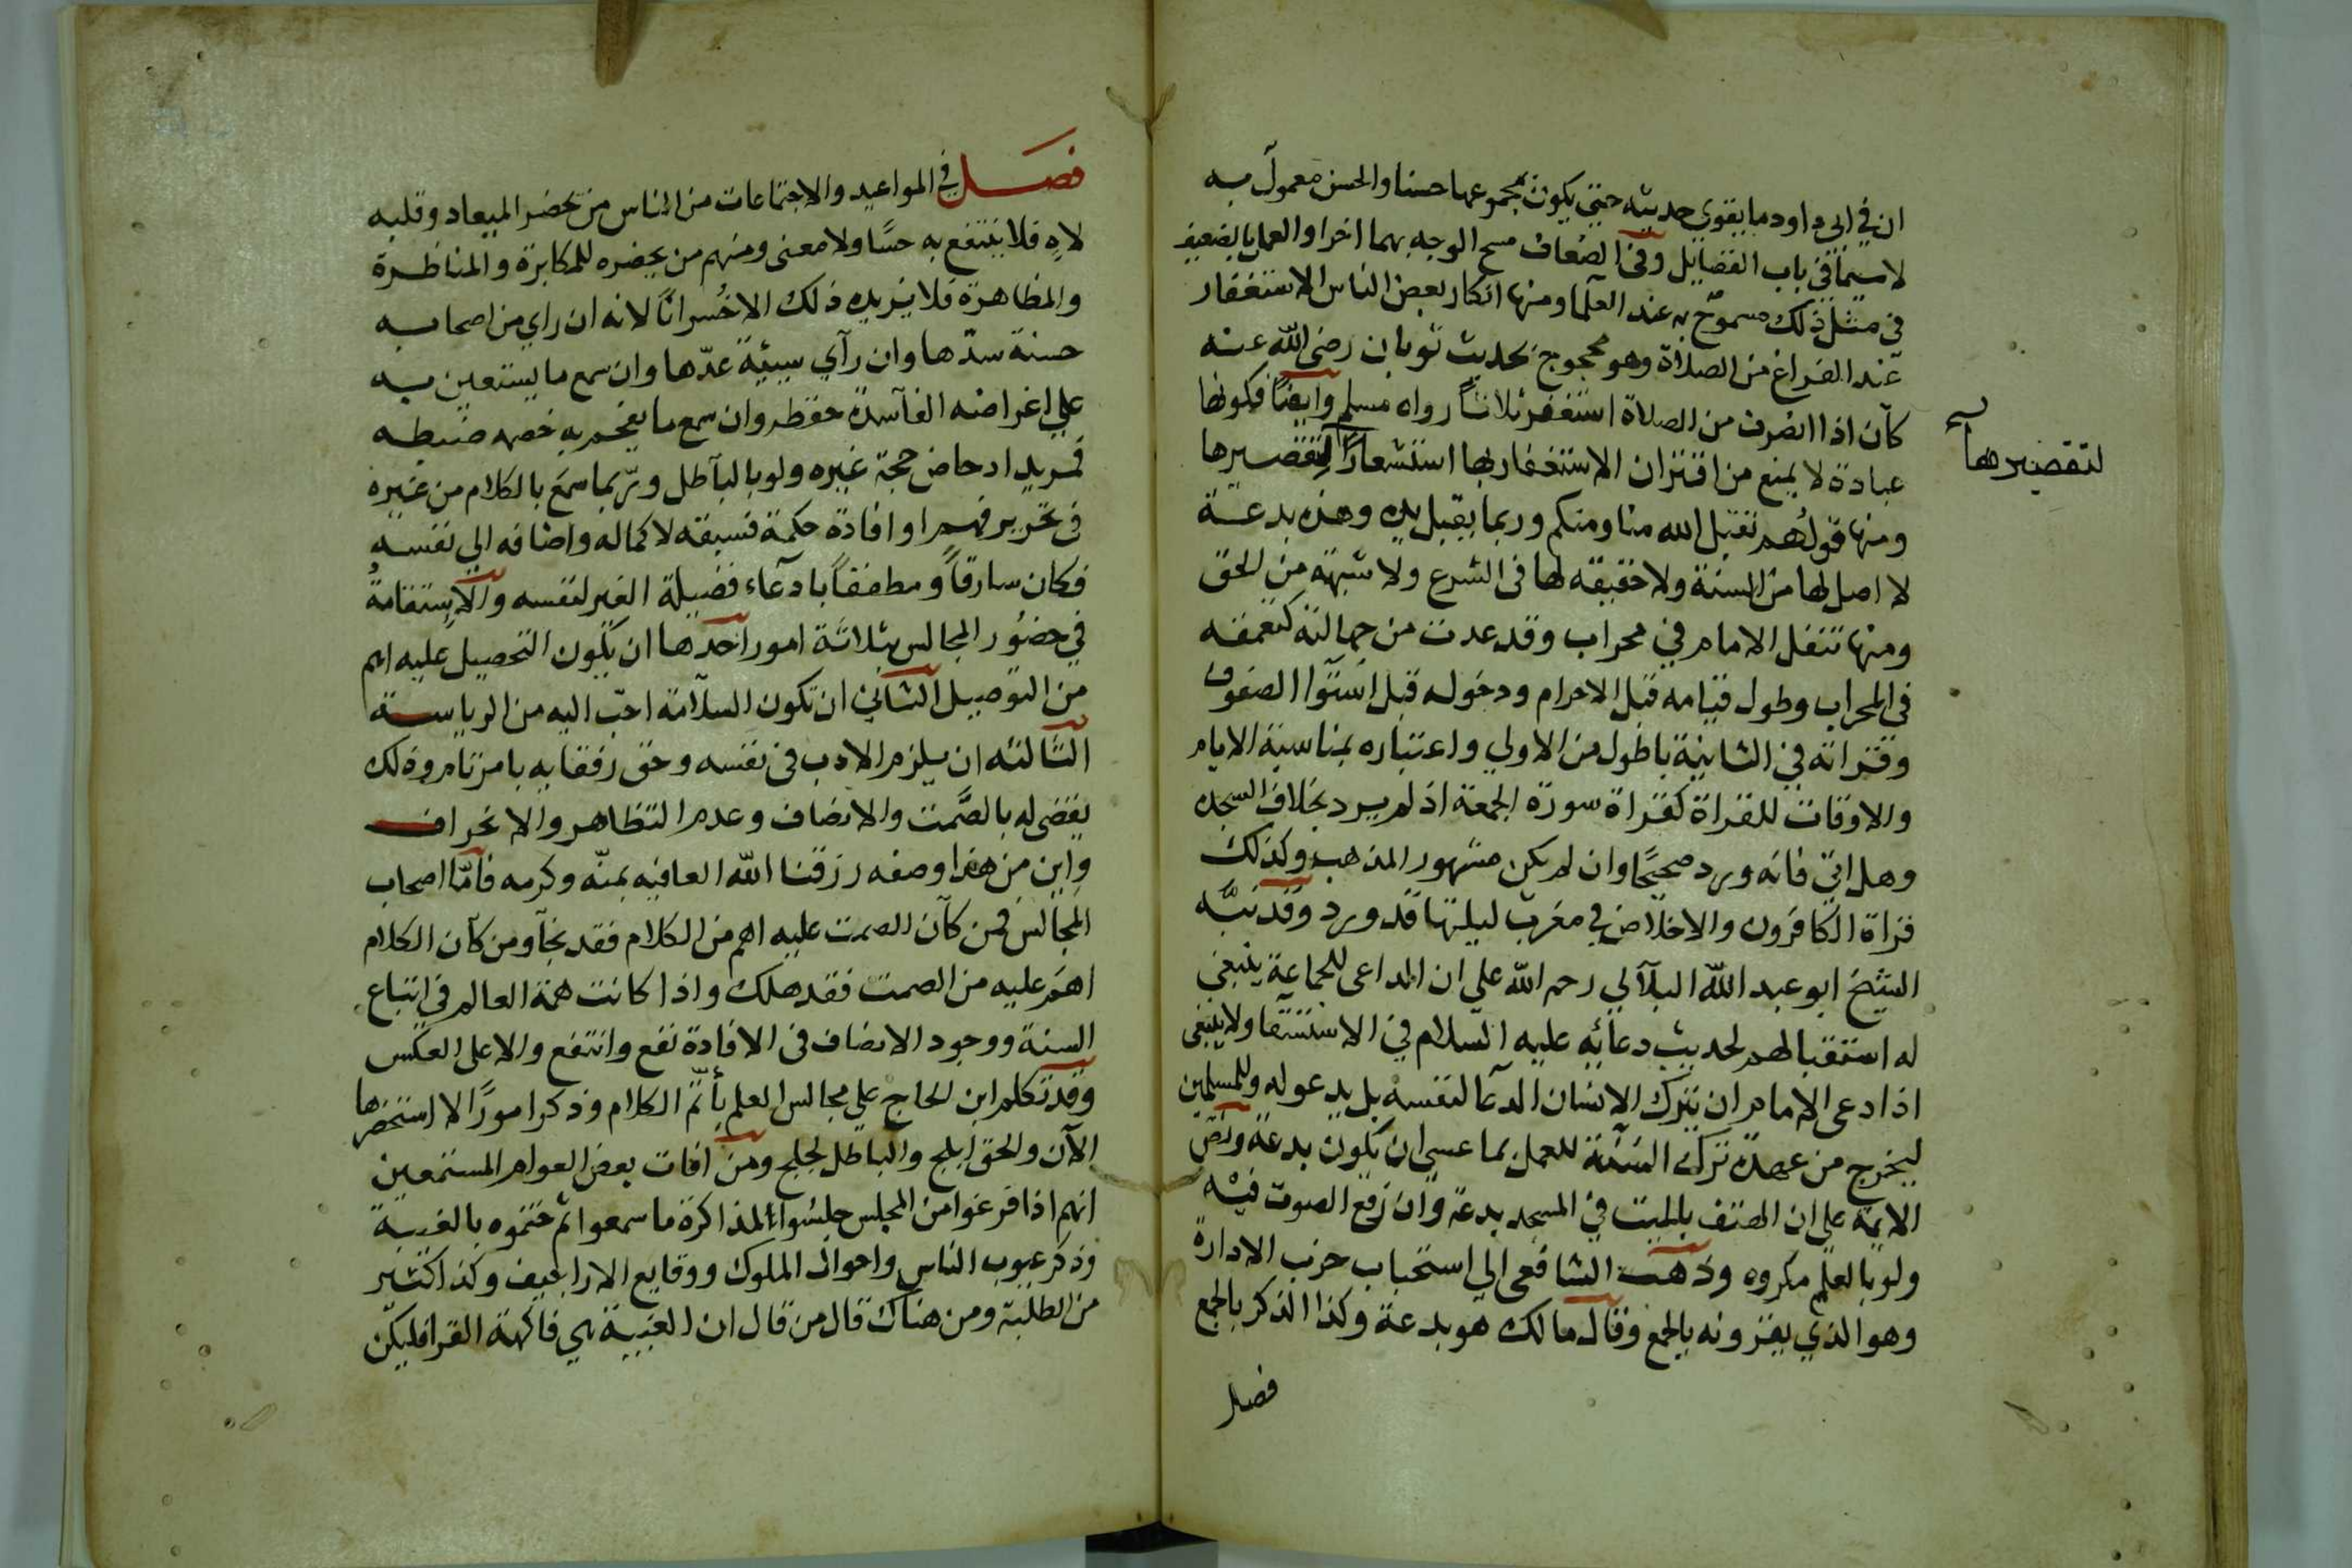 ان في ابي داود ما يقوى حديثه حتى يكون بمجموعها حسنا والحسن معمول به
لاسيما في باب الفضايل وفي الضعاف مسح الوجه بهما اخرا والعمل بالضعيف
في مثل ذلك مسموح به عند العلما ومنها انكار بعض الناس الاستغفار
عند الفراغ من الصلاة وهو محجوج بحديث ثوبان رضى الله عنه
كان اذا انصرف من الصلاة استغفر ثلاثاً رواه مسلم وايضاً فكونها
عبادة لا يمنع من اقتران الاستغفار بها استشعاراً لتقصيرها
لتقصيرها
ومنها قولهم تقبل الله منا ومنكم وربما يقبل يده وهذه بدعة
لا اصل لها من السنة ولا حقيقه لها في الشرع ولا شبهة من الحق
ومنها تنفل الامام في محراب وقد عدت من جهالته كتعمقه
في المحراب وطول قيامه قبل الاحرام ودخوله قبل استوا الصفوف
وقراته في الثانية باطول من الاولي واعتباره بمناسبة الايام
والاوقات للقراة كقراة سورة الجمعة اذ لم يرد بخلاف السجده
وهل اتى فانه ورد صحيحًا وان لم يكن مشهور المذهب وكذلك
قراة الكافرون والاخلاص في مغرب ليلتها قد ورد وقد نبّه
الشيخ ابو عبد الله البلالي رحمه الله علي ان الداعى للجماعة ينبغي
له استقبالهم لحديث دعائه عليه السلام في الاستسقا ولا ينبغي
اذا دعى الامام ان يترك الانسان الدعا لنفسه بل يدعو له وللمسلمين
ليخرج من عهدة ترك السنة للعمل بما عسى ان يكون بدعة ونص
الايمه علي ان الهتف بالميت في المسجد بدعة وان رفع الصوت فيه
ولو بالعلم مكروه وذهب الشافعى الي استحباب حزب الادارة
وهو الذي يقرونه بالجمع وقال مالك هو بدعة وكذا الذكر بالجمع
فصل
فصــل في المواعيد والاجتماعات من الناس من يحضر الميعاد وقلبه
لاهٍ فلا ينتفع به حسًّا ولا معنى ومنهم من يحضره للمكابرة والمناظرة
والمظاهرة فلا يزيده ذلك الا خُسراناً لانه ان راي من اصحابه
حسنة سدّها وان رآي سيئة عدّها وان سمع ما يستعين به
علي اغراضه الفاسدة حفظه وان سمع ما يفحم به خصمه ضبطه
فمريد ادحاض حجة غيره ولو بالباطل وربما سمع بالكلام من غيره
في تحرير فهم او افادة حكمة فسبقه لاكماله واضافه الي نفسه
فكان سارقاً ومطففاً بادعاء فضيلة الغير لنفسه والاستقامةُ
في حضور المجالس بثلاثة امور احدها ان يكون التحصيل عليه اهم
من التوصيل الثاني ان تكون السلامة احبّ اليه من الرياسة
الثالثه ان يلزم الادب في نفسه وحق رفقايه بامر تام وذلك
يقضى له بالصَّمت والانصاف وعدم التظاهر والانحراف
واين من هذا وصفه رزقنا الله العافيه بمنّه وكرمه فامّا اصحاب
المجالس فمن كان الصمت عليه اهم من الكلام فقد نجا ومن كان الكلام
اهم عليه من الصمت فقد هلك واذا كانت همة العالم في اتباع
السنة ووجود الانصاف في الافادة نفع وانتفع والا على العكس
وقد تكلم ابن الحاج علي مجالس العلم بأتمّ الكلام وذكر امورًا لا استحضرها
الآن والحق ابلج والباطل لجلج ومن افات بعض العوام المستمعين
انهم اذا فرغوا من المجلس جلسوا لمذاكرة ما سمعوا ثم ختموه بالغيبة
وذكر عيوب الناس واحوال الملوك ووقايع الاراجيف وكذا كثير
من الطلبة ومن هناك قال من قال ان الغيبة هي فاكهة القرا فليكن